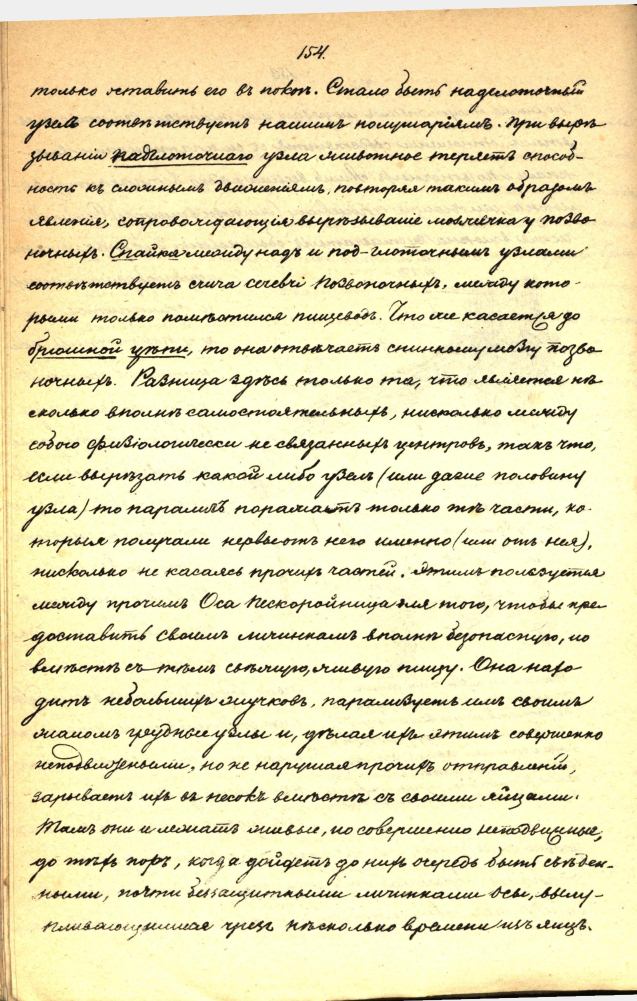 154.
только оставить его въ покоѣ. Стало быть надглоточный
узелъ соотвѣтствуетъ нашимъ полушаріямъ. При вырѣ
зываніи надглоточнаго узла животное теряетъ способ-
ность къ сложнымъ движеніямъ, повторяя такимъ образомъ
явленія, сопровождающія вырѣзываніе мозжечка у позво
ночныхъ. Спайка между надъ и под-глоточнымъ узлами
соотвѣтствуетъ crura cerebri позвоночныхъ, между кото-
рыми только помѣстился пищеводъ. Что же касается до
брюшной цѣпи, то она отвѣчаетъ спинному мозгу позво
ночныхъ. Разница здѣсь только та, что является нѣ
сколько вполнѣ самостоятельныхъ, нисколько между
собою физіологически не связанныхъ центровъ, такъ что,
если вырѣзать какой либо узелъ (или даже половину
узла) то параличъ поражаетъ только тѣ части, ко-
торыя получали нервы отъ него именно (или отъ нея),
нисколько не касаясь прочихъ частей. Этимъ пользуется
между прочимъ Оса пескоройница для того, чтобы пре
доставить своимъ личинкамъ вполнѣ безопасную, но
вмѣстѣ съ тѣмъ свѣжую, живую пищу. Она нахо
дитъ небольшихъ жучковъ, парализуетъ имъ своимъ
жаломъ грудные узлы и, дѣлая ихъ этимъ совершенно
неподвижными, но не нарушая прочихъ отправленій,
зарываетъ ихъ въ песокъ вмѣстѣ съ своими яйцами.
Тамъ они и лежатъ живые, но совершенно неподвижные,
до тѣхъ поръ, когда дойдетъ до нихъ очередь быть съѣден-
ными, почти беззащитными личинками осы, вылу-
пливающимися чрезъ нѣсколько времени изъ яицъ.